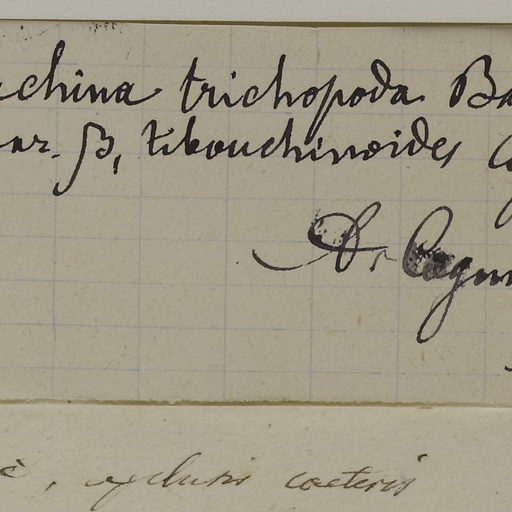 china trichopoda Ba
ar. β, tibouchinoides Cog
Dr Cogn
, exclusis caeteris